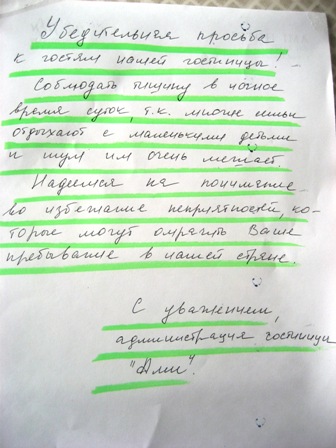 Убедительная просьба
к гостям нашей гостиницы!
Соблюдать тишину в ночное
время суток, т.к. многие
отдыхают с маленькими детьми
и шум им очень мешает.
Надеемся на понимание
во избежание неприятностей, ко-
торые могут омрачить Ваше
пребывание в нашей стране.
С уважением,
администрация гостиницы
"Али".